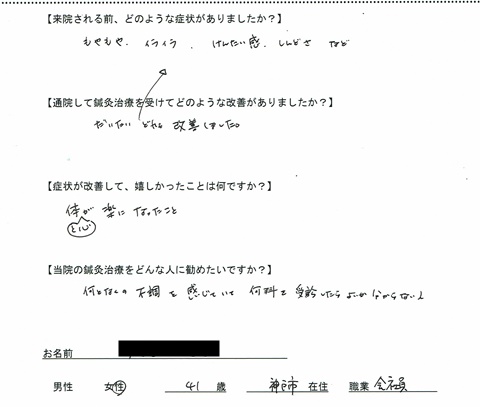 【来院される前、どのような症状がありましたか？】
もやもや、イライラ、けんたい感、しんどさ など
【通院して鍼灸治療を受けてどのような改善がありましたか？】
だいたい どれも 改善しました。
【症状が改善して、嬉しかったことは何ですか？】
体が 楽に なったこと
と心
【当院の鍼灸治療をどんな人に勧めたいですか？】
何となくの 不調 を 感じていて 何科を 受診したら よいか わからない人
お名前
男性 女性 41 歳 神戸市 在住 職業 会社員